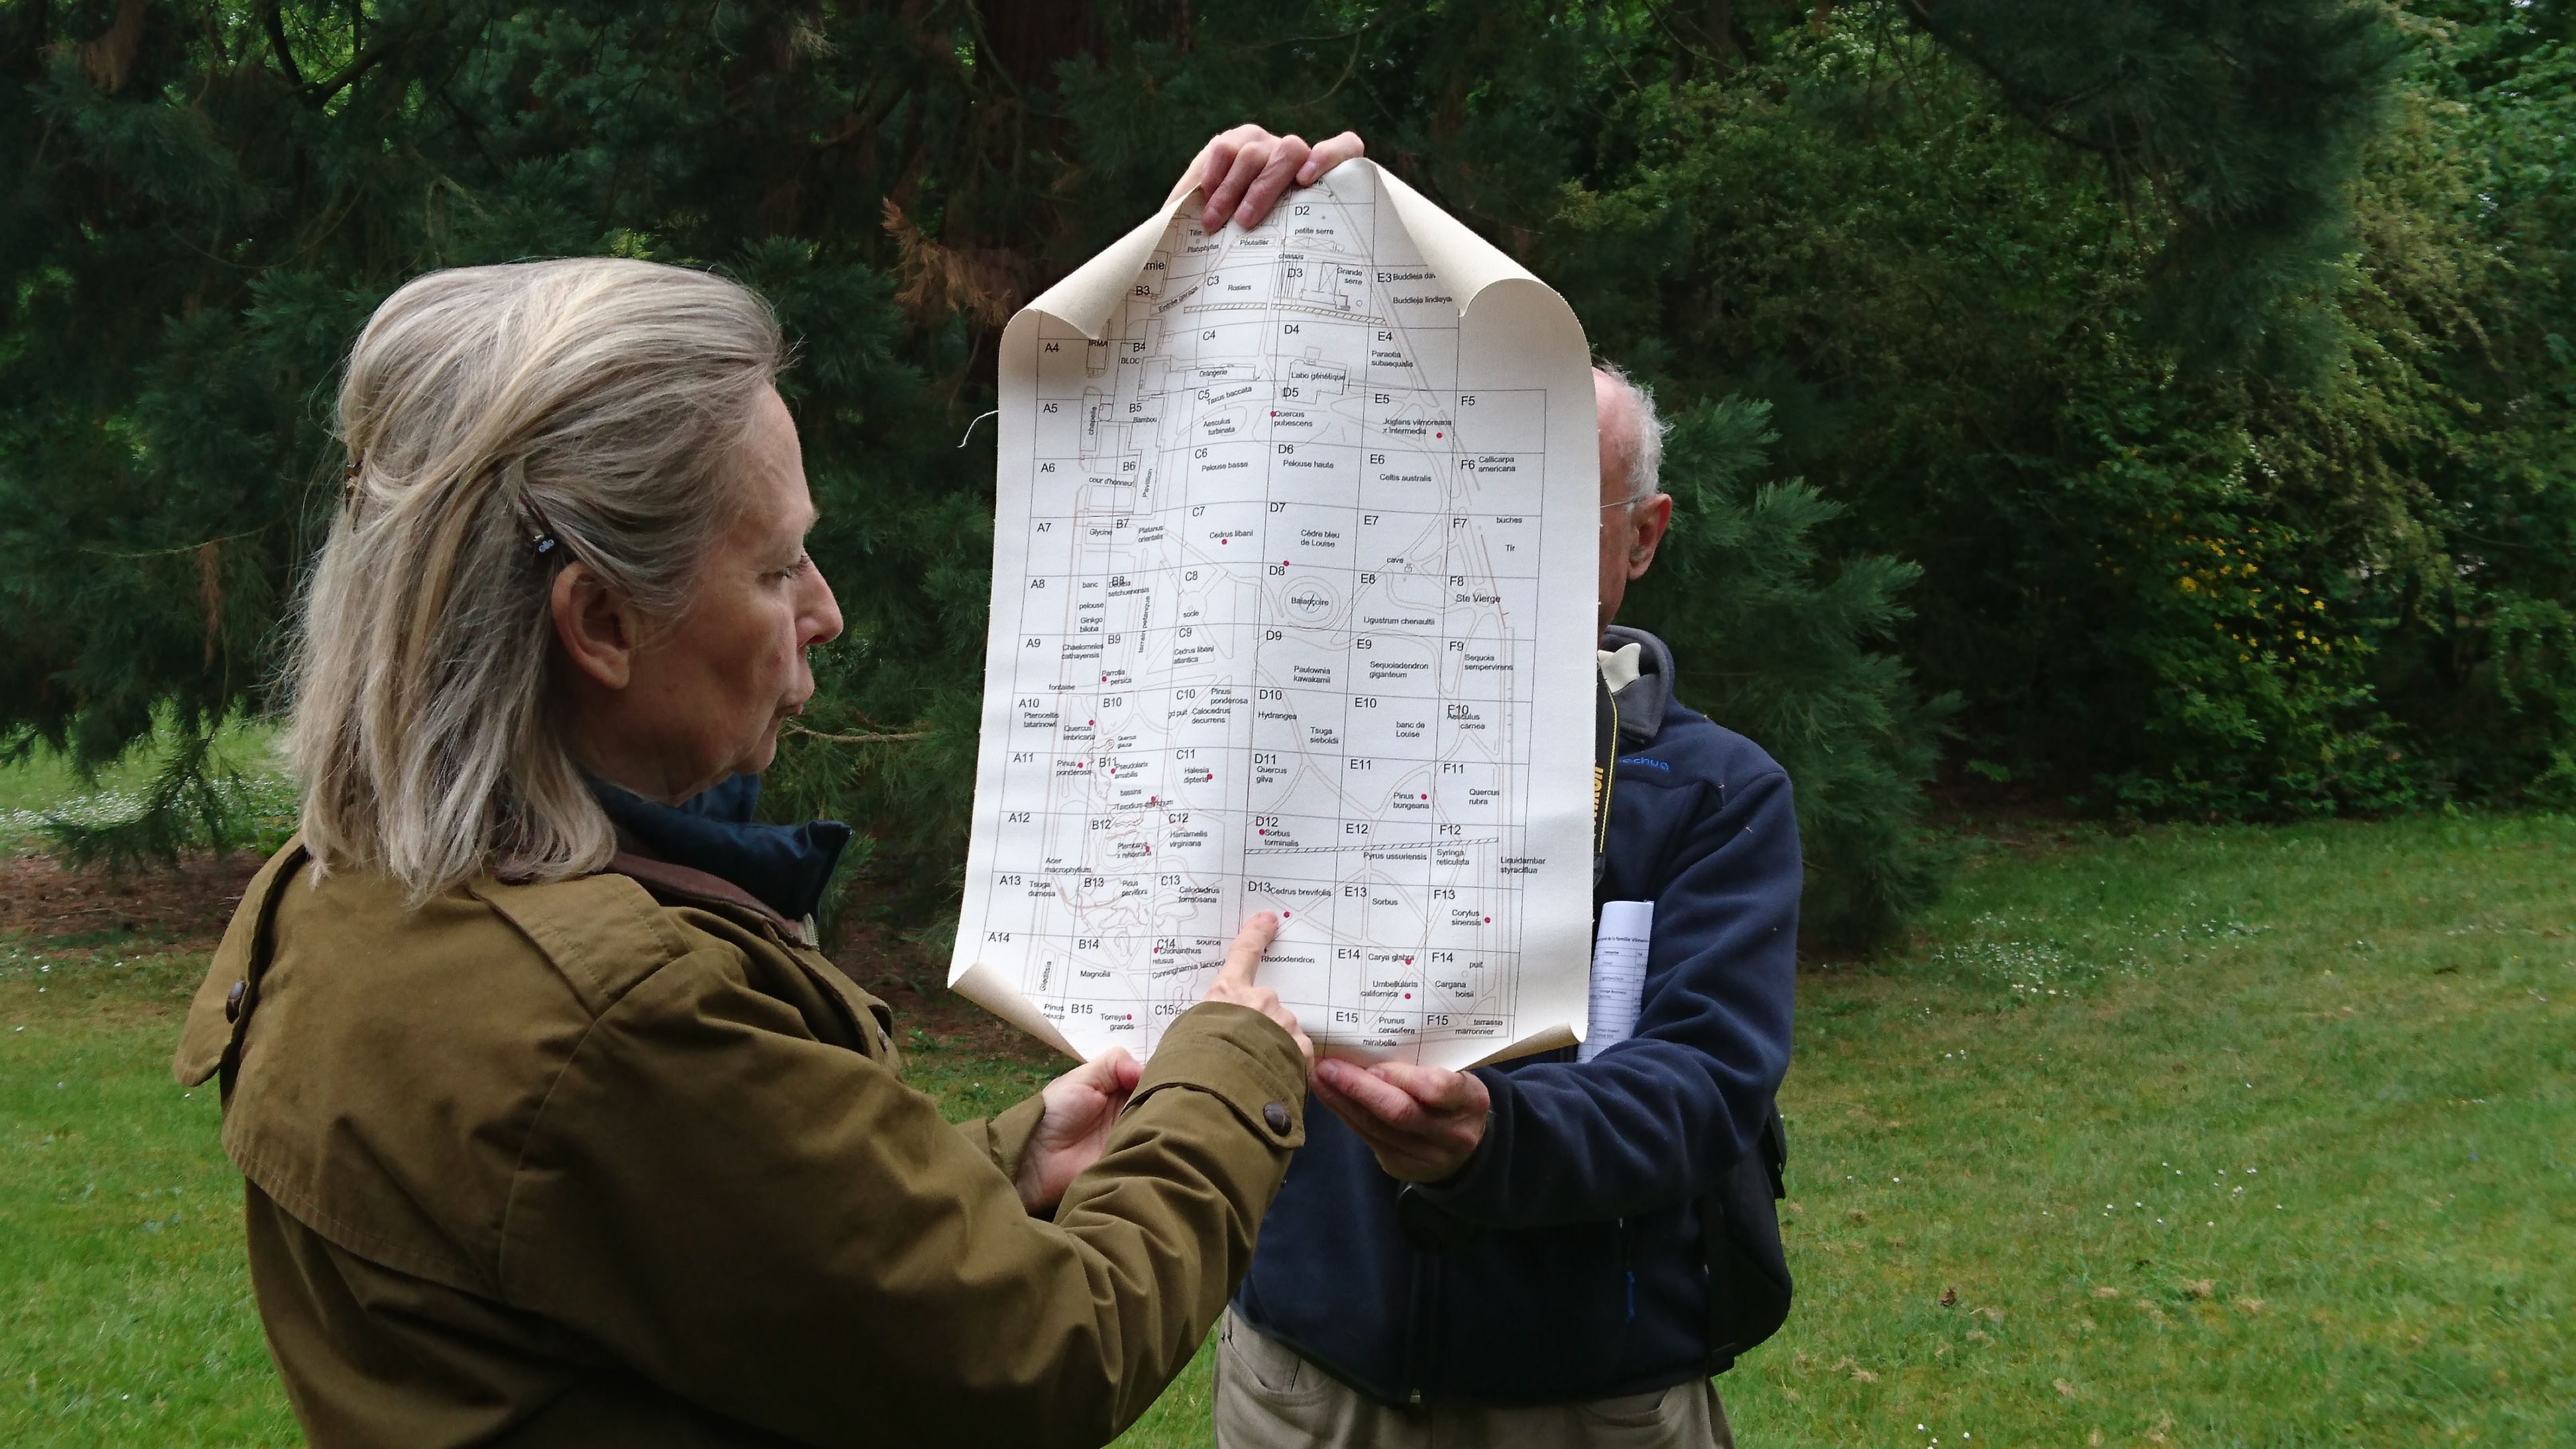 D2
Tilia
Platyphyllos
Poulailler
petite serre
chassis
B3
Entrée garage
C3
Rosiers
D3
Grande
serre
E3
Buddleja dav
Buddleja lindleya
A4
B4
BLOC
C4
Orangerie
D4
Labo génétique
E4
Parrotia
subaequalis
A5
chapelle
B5
Bambou
C5
Taxus baccata
Aesculus
turbinata
D5
Quercus
pubescens
E5
Juglans vilmoreana
x intermedia
F5
A6
B6
cour d'honneur
Pavillon
C6
Pelouse basse
D6
Pelouse haute
E6
Celtis australis
F6
Callicarpa
americana
A7
Glycine
B7
Platanus
orientalis
C7
Cedrus libani
D7
Cèdre bleu
de Louise
E7
cave
F7
buches
Tir
A8
banc
pelouse
Ginkgo
biloba
B8
setchuenensis
terrain petanque
C8
socle
D8
Balançoire
E8
Ligustrum chenaultii
F8
Ste Vierge
A9
Chaelomeles
cathayensis
fontaine
B9
Parrotia
persica
C9
Cedrus libani
atlantica
D9
Paulownia
kawakamii
E9
Sequoiadendron
giganteum
F9
Sequoia
sempervirens
A10
Pteroceltis
tatarinowii
Quercus
imbricaria
B10
Quercus
glauca
C10
Pinus
ponderosa
gd puit
Calocedrus
decurrens
D10
Hydrangea
Tsuga
sieboldii
E10
banc de
Louise
F10
Aesculus
carnea
A11
Pinus
ponderosa
B11
Pseudolarix
amabilis
bassins
Taxodium distichum
C11
Halesia
diptera
D11
Quercus
gilva
E11
Pinus
bungeana
F11
Quercus
rubra
A12
Acer
macrophyllum
B12
Pterocarya
x rehderiana
C12
Hamamelis
virginiana
D12
Sorbus
torminalis
E12
Pyrus ussuriensis
F12
Syringa
reticulata
Liquidambar
styraciflua
A13
Tsuga
dumosa
B13
Picus
parviflora
C13
Calocedrus
formosana
D13
Cedrus brevifolia
E13
Sorbus
F13
Corylus
sinensis
A14
Gleditsia
B14
Magnolia
C14
source
Chionanthus
retusus
Cunninghamia lanceol
Rhododendron
E14
Carya glabra
Umbellularia
californica
F14
puit
Cargana
boisii
Pinus
peuce
B15
Torreya
grandis
C15
E15
Prunus
cerasifera
mirabelle
F15
terrasse
marronnier
echua